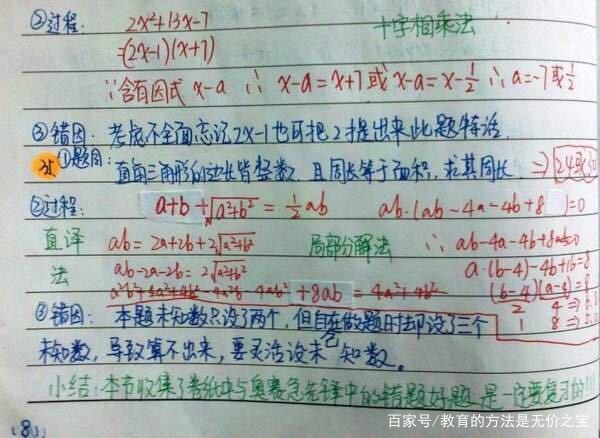 ②过程: 2x²+13x-7 十字相乘法
=(2x-1)(x+7)
∵含有因式 x-a ∴ x-a=x+7 或 x-a=x-½ ∴a=-7或½
③错因: 考虑不全面忘记2x-1也可把2提出来此题特活.
①题目: 直角三角形的边长皆整数,且周长等于面积,求其周长. ⇒24或30
②过程: a+b+√a²+b² = ½ab ab·(ab-4a-4b+8)=0
直译 ab=2a+2b+2√a²+b² 局部分解法 ∴ab-4a-4b+8=0
法 ab-2a-2b=2√a²+b² a·(b-4)-4b+16=8
+8ab = 4a²+4b² (b-4)(a-4)=8
2 4
③错因: 本题未知数只设了两个,但自己在做题时却设了三个 1 8
未知数,导致算不出来,要灵活设未知数。
小结:本节收集了卷纸中与奥赛急先锋中的错题好题,是一定要复习的!!!
(8)
百家号/教育的方法是无价之宝